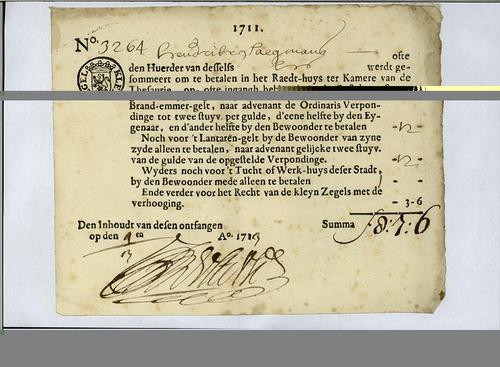 1711.
No. 3264 Hendrik Saegmans ofte
den Huerder van desselfs werdt ge-
sommeert om te betalen in het Raedt-huys ter Kamere van de
Thesaurie, op, ofte ingangh
Brand-emmer-gelt, naar advenant de Ordinaris Verpon-
dinge tot twee stuyv. per gulde, d'eene helfte by den Ey-
genaar, en d'ander helfte by den Bewoonder te betalen - 12 -
Noch voor 't Lantaren-gelt by de Bewoonder van zyne
zyde alleen te betalen, naar advenant gelijcke twee stuyv.
van de gulde van de opgestelde Verpondinge. - 12 -
Wyders noch voor 't Tucht of Werk-huys deser Stad,
by den Bewoonder mede alleen te betalen -
Ende verder voor het Recht van de kleyn Zegels met de
verhooging. - 3-6
Den Inhoudt van desen ontfangen Summa f 8:7:6
op den Ao. 171